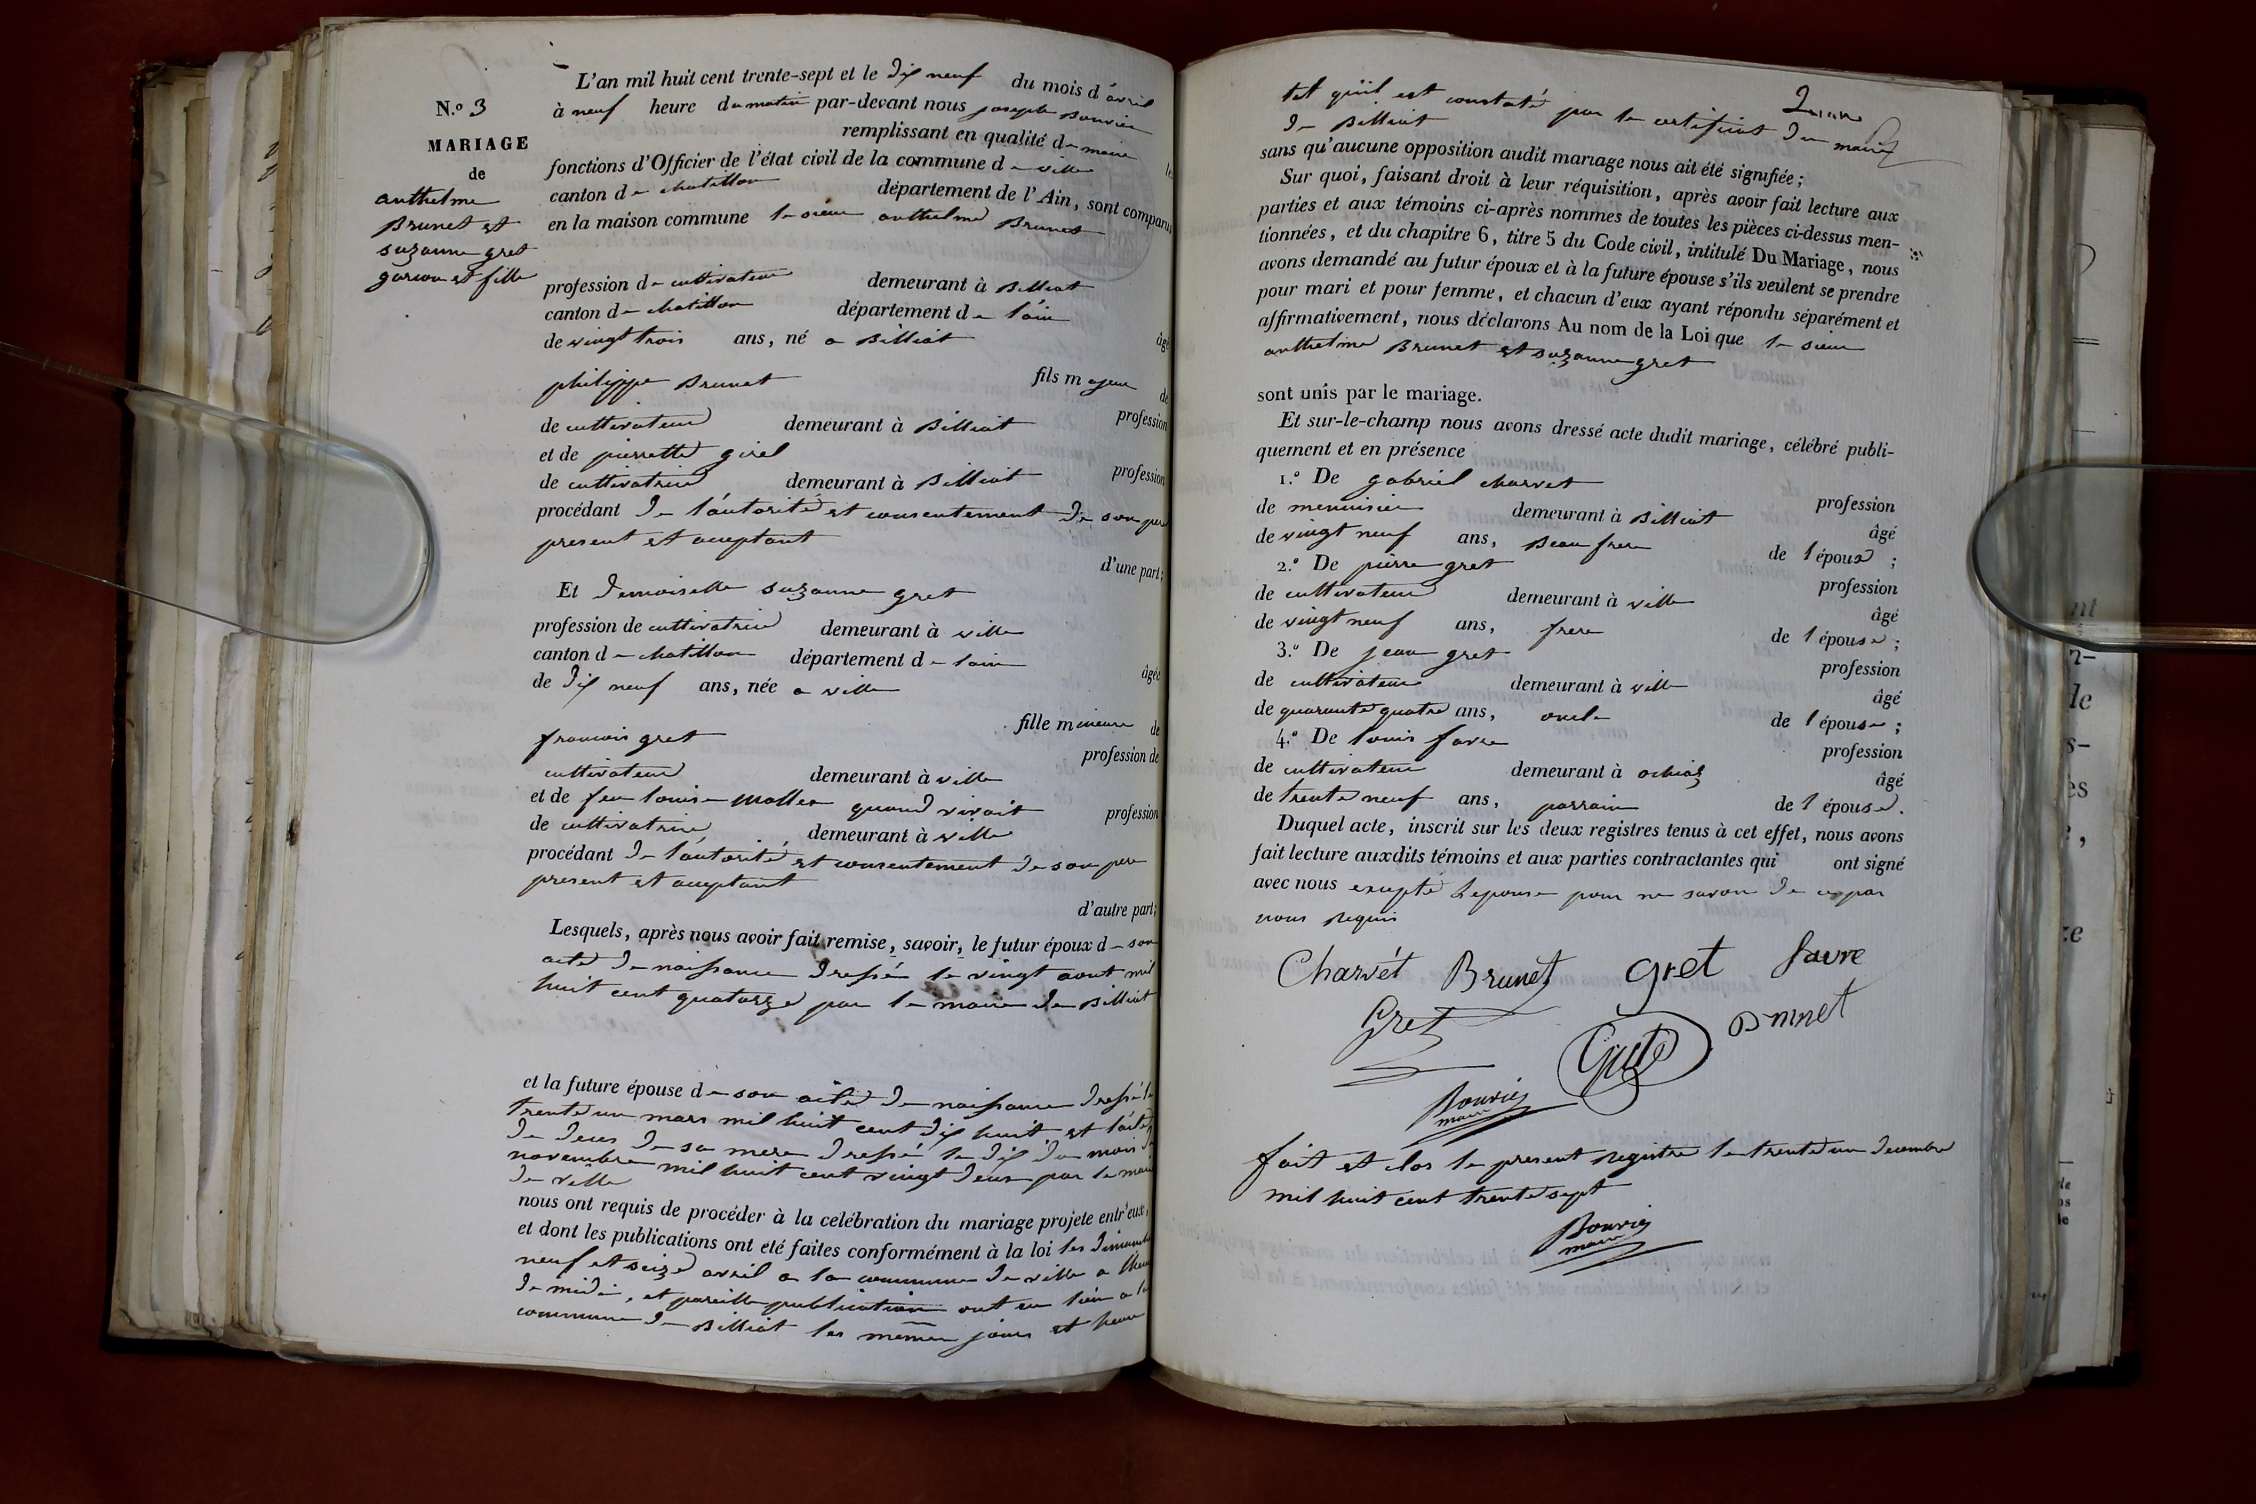 N.º 3
MARIAGE
de
anthelme
Brunet et
suzanne gret
garcon et fille
L'an mil huit cent trente-sept et le dix neuf du mois d'avril
à neuf heure du matin par-devant nous joseph Bouvier
remplissant en qualité de maire les
fonctions d'Officier de l'état civil de la commune de ville
canton de chatillon département de l'Ain, sont comparus
en la maison commune le sieur anthelme Brunet
profession de cultivateur demeurant à Billiat
canton de chatillon département de l'ain âgé
de vingt trois ans, né a Billiat
fils majeur de
philippe Brunet profession
de cultivateur demeurant à Billiat
et de pierrette girel profession
de cultivatrice demeurant à Billiat
procédant de l'autorité et consentement de son pere
present et acceptant
d'une part;
Et demoiselle suzanne gret
profession de cultivatrice demeurant à ville
canton de chatillon département de l'ain âgée
de dix neuf ans, née a ville
fille mineure de
francois gret profession de
cultivateur demeurant à ville
et de feu louise quand vivait profession
de cultivatrice demeurant à ville
procédant de l'autorité et consentement de son pere
present et acceptant
d'autre part;
Lesquels, après nous avoir fait remise, savoir, le futur époux de son
acte de naissance dressé le vingt aout mil
huit cent quatorze par le maire de Billiat
et la future épouse de son acte de naissance dressé le
trente un mars mil huit cent dix huit et l'acte
de deces de sa mere dressé le dix du mois de
novembre mil huit cent vingt deux par le maire
de ville
nous ont requis de procéder à la celébration du mariage projete entr'eux,
et dont les publications ont été faites conformément à la loi les dimanche
neuf et seize avril a la commune de ville a l'heure
de midi, et pareille publication ont eu lieu a la
commune de Billiat les memes jours et heure
tel qu'il est constaté par le certificat du maire
de Billiat
sans qu'aucune opposition audit mariage nous ait été signifiée;
Sur quoi, faisant droit à leur réquisition, après avoir fait lecture aux
parties et aux témoins ci-après nommes de toutes les pièces ci-dessus men-
tionnées, et du chapitre 6, titre 5 du Code civil, intitulé Du Mariage, nous
avons demandé au futur époux et à la future épouse s'ils veulent se prendre
pour mari et pour femme, et chacun d'eux ayant répondu séparément et
affirmativement, nous déclarons Au nom de la Loi que le sieur
anthelme Brunet et suzanne gret
sont unis par le mariage.
Et sur-le-champ nous avons dressé acte dudit mariage, célébré publi-
quement et en présence
1.º De gabriel charvet profession
de menuisier demeurant à Billiat âgé
de vingt neuf ans, Beau frere de l'époux;
2.º De pierre gret profession
de cultivateur demeurant à ville âgé
de vingt neuf ans, frere de l'épouse;
3.º De jean gret profession
de cultivateur demeurant à ville âgé
de quarante quatre ans, oncle de l'épouse;
4.º De louis favre profession
de cultivateur demeurant à ochiaz âgé
de trente neuf ans, parrain de l'épouse.
Duquel acte, inscrit sur les deux registres tenus à cet effet, nous avons
fait lecture auxdits témoins et aux parties contractantes qui ont signé
avec nous excepté l'epouse pour ne savoir de ce par
nous Requis
Charvét Brunet gret favre
Gret
Bouvier
maire
fait et clos le present Registre le trente un decembre
mil huit cent trente sept
Bouvier
maire